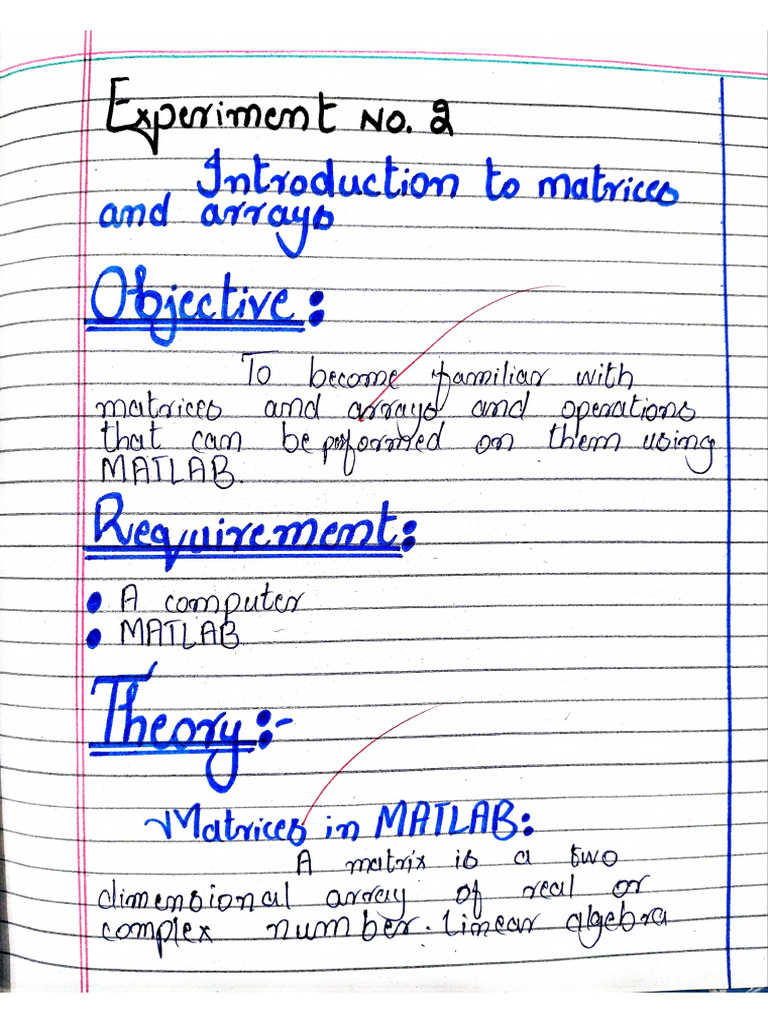 Experiment No. 2
Introduction to matrices
and arrays
Objective:
To become familiar with
matrices and arrays and operations
that can be performed on them using
MATLAB.
Requirement:
• A computer
• MATLAB
Theory:-
Matrices in MATLAB:
A matrix is a two
dimensional array of real or
complex number. linear algebra